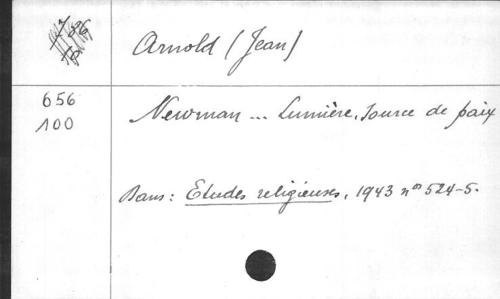 Arnold (Jean)
656
100
Newman ... Lumière, source de paix
Dans: Etudes religieuses, 1943 nos 524-5.